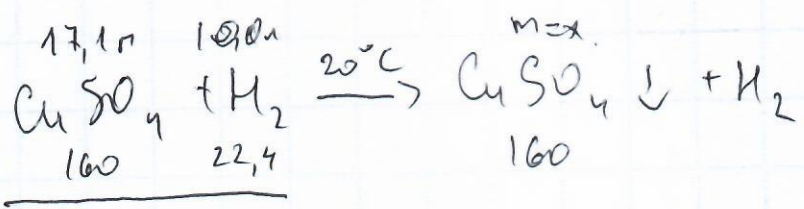 17,1г 100л m=x
CuSO4 + H2 20°C → CuSO4 ↓ + H2
160 22,4 160